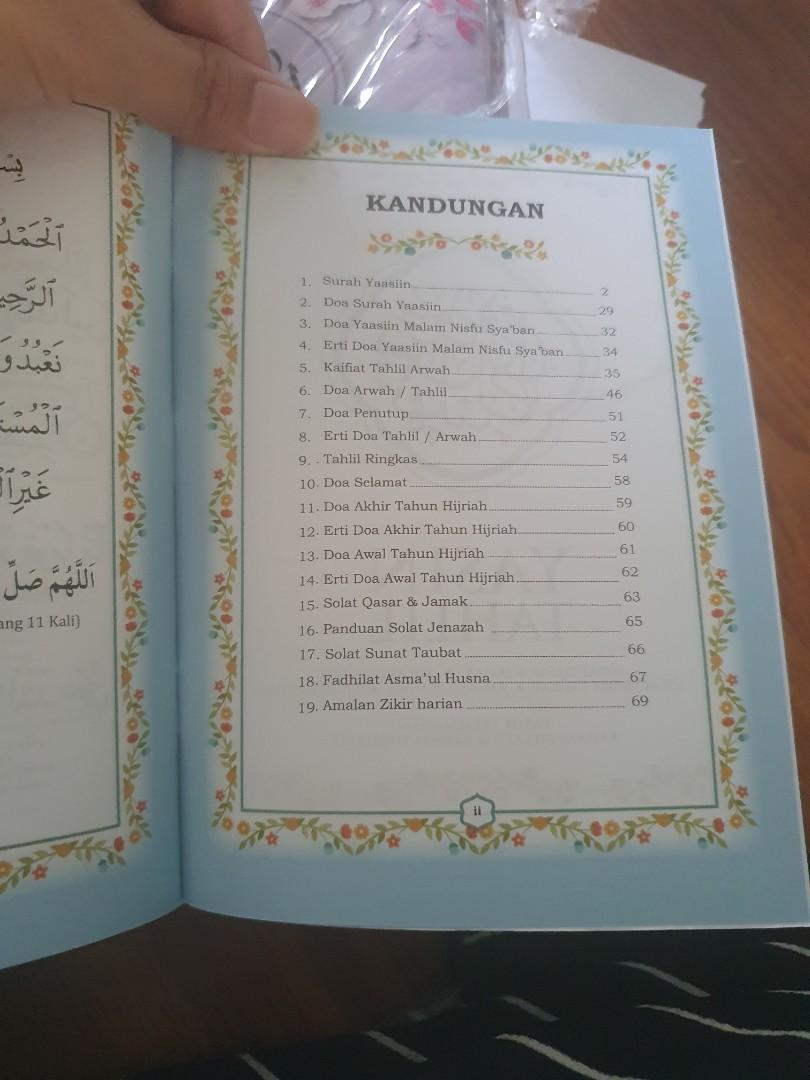 الرَّحِي
نَعْبُدُ وَ
غَيْرِ ال
اَللَّهُمَّ صَلِّ
ang 11 Kali)
KANDUNGAN
1. Surah Yaasiin 2
2. Doa Surah Yaasiin 29
3. Doa Yaasiin Malam Nisfu Sya'ban 32
4. Erti Doa Yaasiin Malam Nisfu Sya'ban 34
5. Kaifiat Tahlil Arwah 35
6. Doa Arwah / Tahlil 46
7. Doa Penutup 51
8. Erti Doa Tahlil / Arwah 52
9. . Tahlil Ringkas 54
10. Doa Selamat 58
11. Doa Akhir Tahun Hijriah 59
12. Erti Doa Akhir Tahun Hijriah 60
13. Doa Awal Tahun Hijriah 61
14. Erti Doa Awal Tahun Hijriah 62
15. Solat Qasar & Jamak 63
16. Panduan Solat Jenazah 65
17. Solat Sunat Taubat 66
18. Fadhilat Asma'ul Husna 67
19. Amalan Zikir harian 69
ii